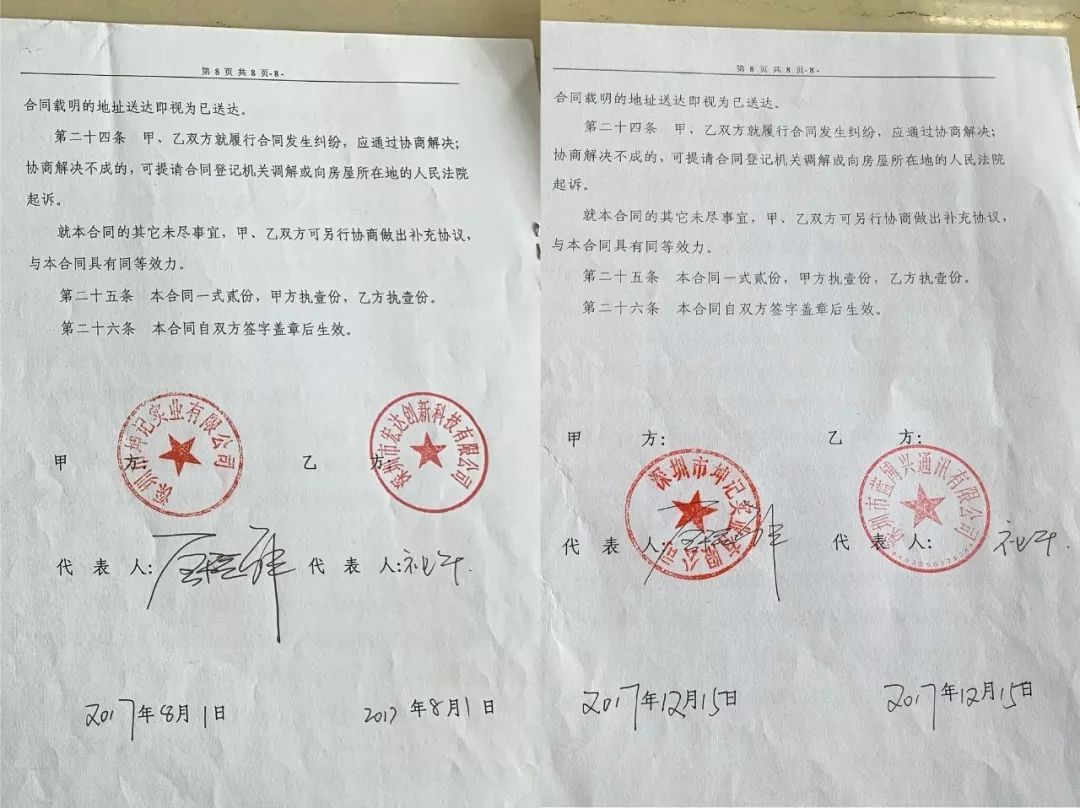 第 8 页 共 8 页-8-
合同载明的地址送达即视为已送达。
第二十四条 甲、乙双方就履行合同发生纠纷，应通过协商解决；
协商解决不成的，可提请合同登记机关调解或向房屋所在地的人民法院
起诉。
就本合同的其它未尽事宜，甲、乙双方可另行协商做出补充协议，
与本合同具有同等效力。
第二十五条 本合同一式贰份，甲方执壹份，乙方执壹份。
第二十六条 本合同自双方签字盖章后生效。
甲 方：
深圳市坤记实业有限公司
乙 方
深圳市宏达创新科技有限公司
代 表 人：
代 表 人：
2017年8月1日
2017年8月1日
第 8 页 共 8 页-8-
合同载明的地址送达即视为已送达。
第二十四条 甲、乙双方就履行合同发生纠纷，应通过协商解决；
协商解决不成的，可提请合同登记机关调解或向房屋所在地的人民法院
起诉。
就本合同的其它未尽事宜，甲、乙双方可另行协商做出补充协议，
与本合同具有同等效力。
第二十五条 本合同一式贰份，甲方执壹份，乙方执壹份。
第二十六条 本合同自双方签字盖章后生效。
甲 方：
深圳市坤记实业有限公司
乙 方：
深圳市蓝博兴通讯有限公司
代 表 人：
代 表 人：
2017年12月15日
2017年12月15日